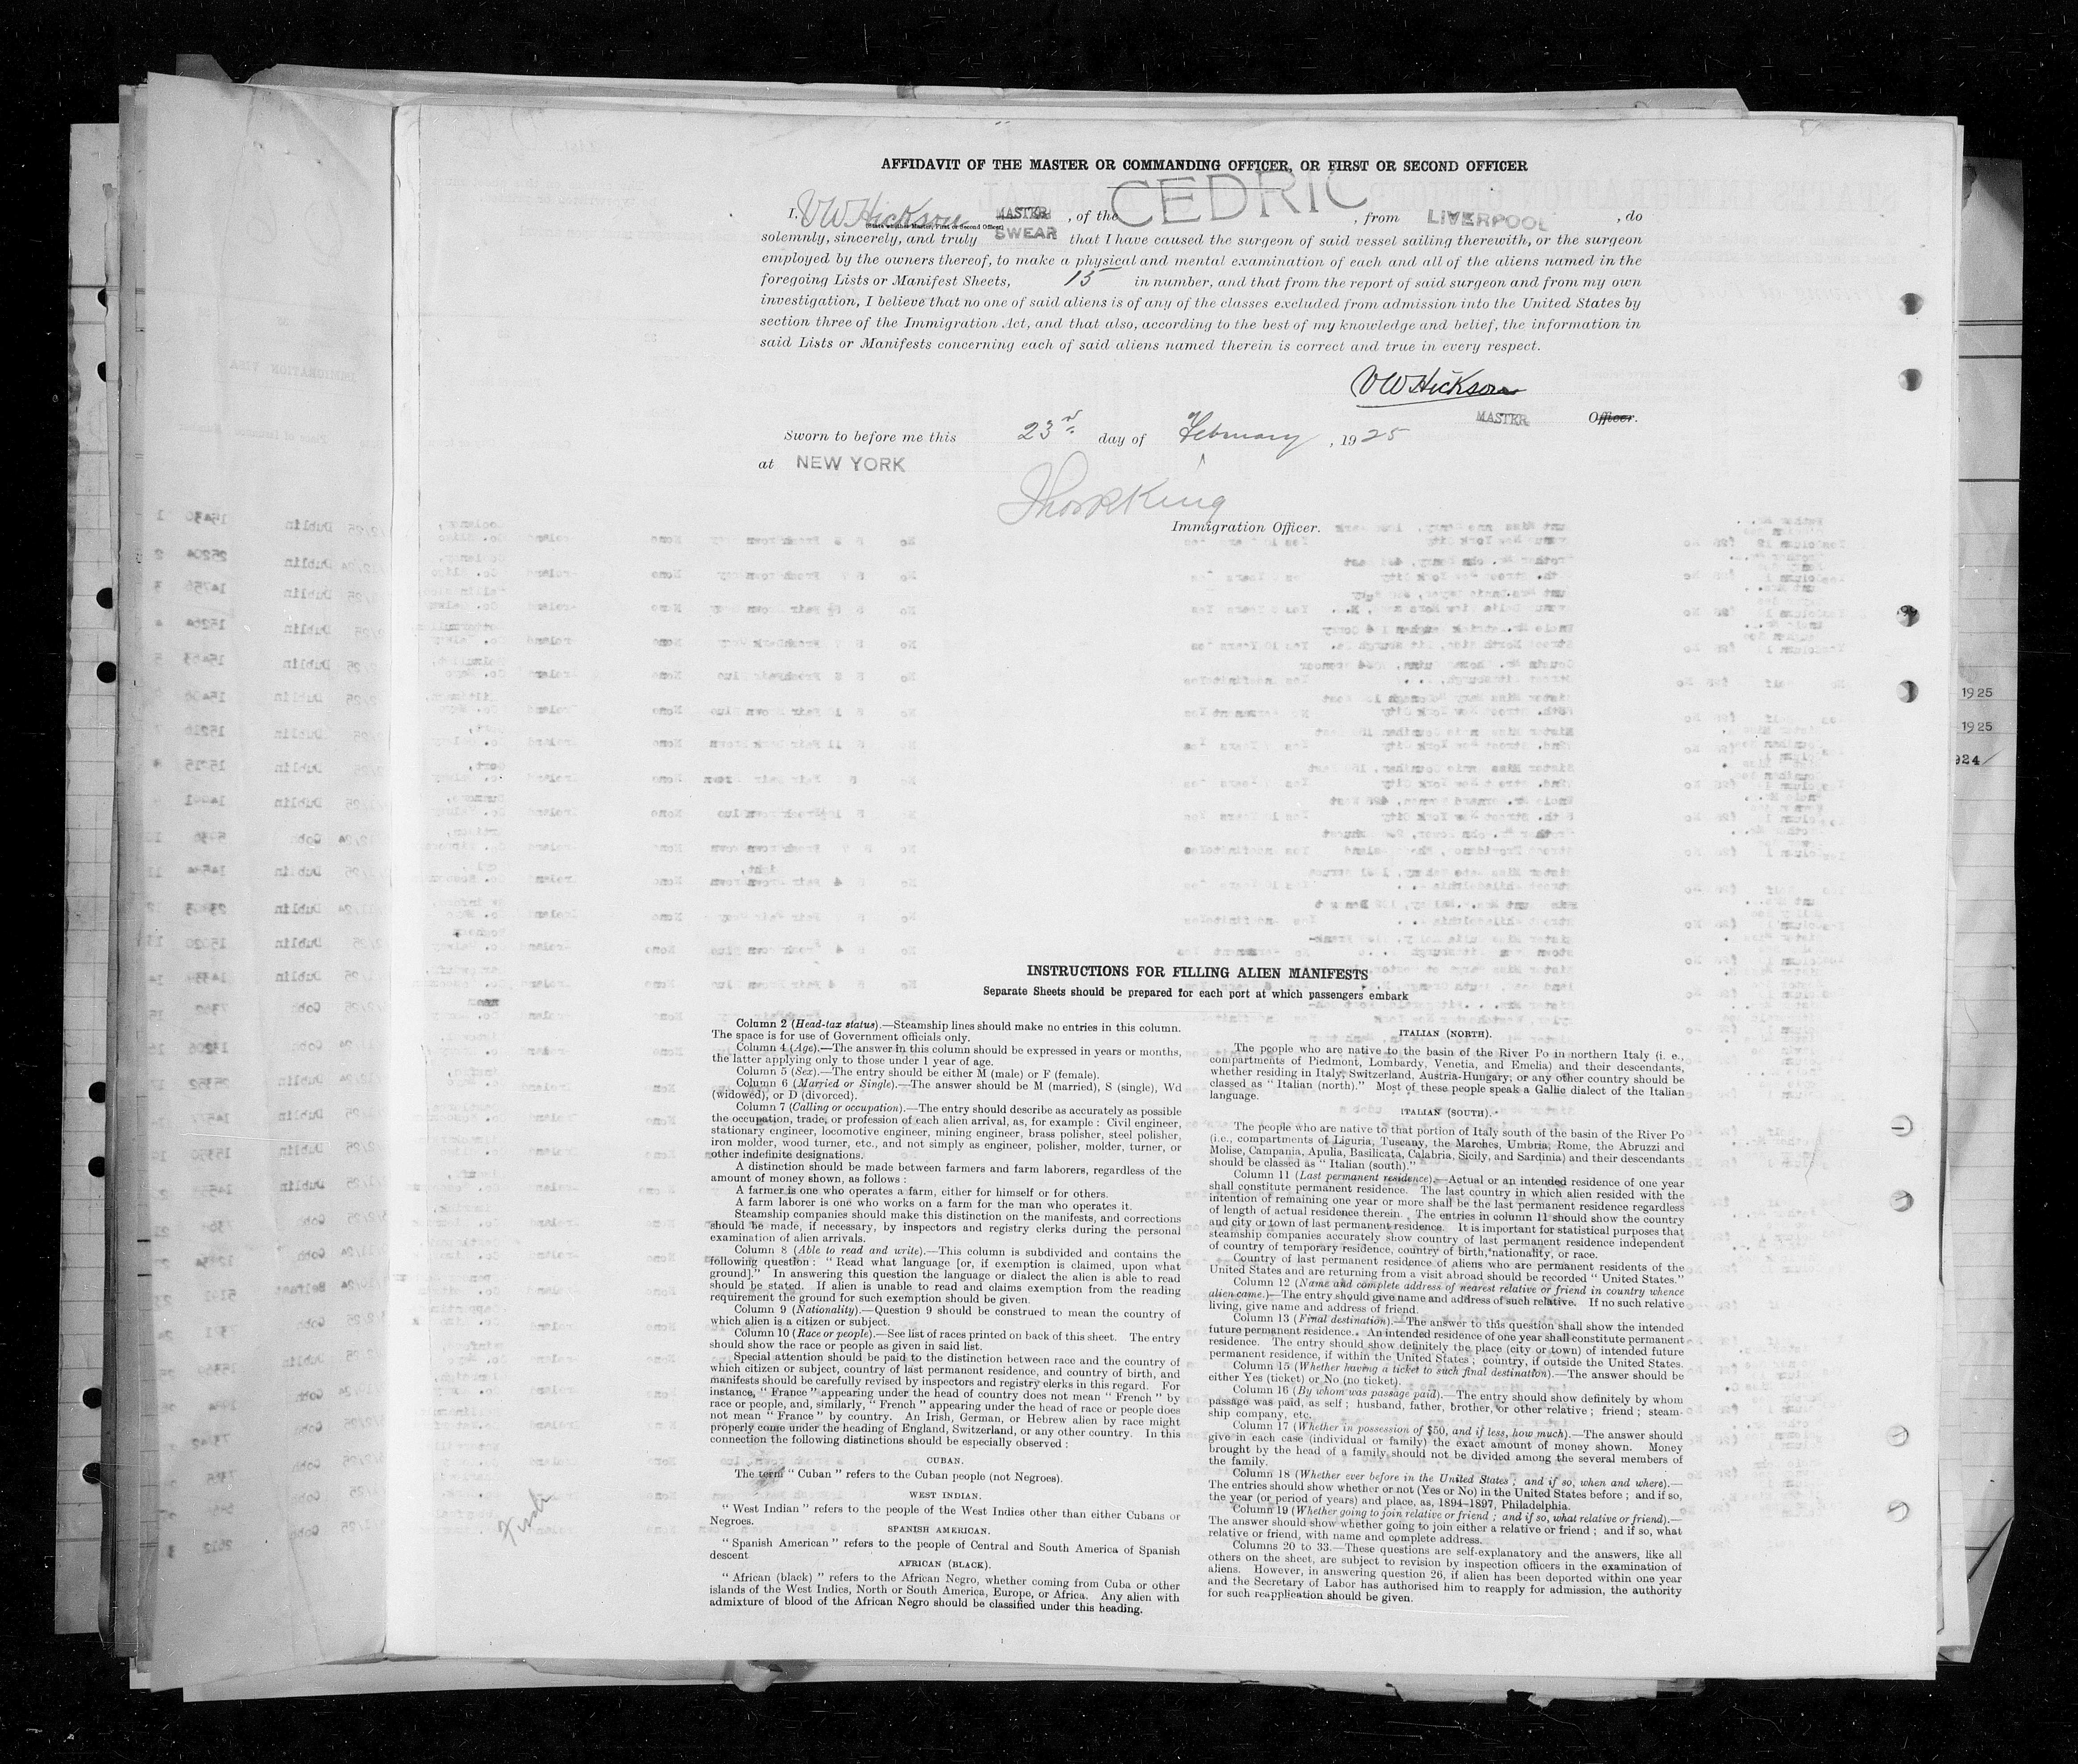 AFFIDAVIT OF THE MASTER OR COMMANDING OFFICER, OR FIRST OR SECOND OFFICER
I, V W Hickson MASTER , of the CEDRIC , from LIVERPOOL , do
(State whether Master, First or Second Officer)
solemnly, sincerely, and truly SWEAR that I have caused the surgeon of said vessel sailing therewith, or the surgeon
employed by the owners thereof, to make a physical and mental examination of each and all of the aliens named in the
foregoing Lists or Manifest Sheets, 15 in number, and that from the report of said surgeon and from my own
investigation, I believe that no one of said aliens is of any of the classes excluded from admission into the United States by
section three of the Immigration Act, and that also, according to the best of my knowledge and belief, the information in
said Lists or Manifests concerning each of said aliens named therein is correct and true in every respect.
V W Hickson
MASTER Officer.
Sworn to before me this 23rd day of February , 1925
at NEW YORK
King
Immigration Officer.
1925
1925
924
INSTRUCTIONS FOR FILLING ALIEN MANIFESTS
Separate Sheets should be prepared for each port at which passengers embark
Column 2 (Head-tax status).—Steamship lines should make no entries in this column.
The space is for use of Government officials only.
Column 4 (Age).—The answer in this column should be expressed in years or months,
the latter applying only to those under 1 year of age.
Column 5 (Sex).—The entry should be either M (male) or F (female).
Column 6 (Married or Single).—The answer should be M (married), S (single), Wd
(widowed), or D (divorced).
Column 7 (Calling or occupation).—The entry should describe as accurately as possible
the occupation, trade, or profession of each alien arrival, as, for example : Civil engineer,
stationary engineer, locomotive engineer, mining engineer, brass polisher, steel polisher,
iron molder, wood turner, etc., and not simply as engineer, polisher, molder, turner, or
other indefinite designations.
A distinction should be made between farmers and farm laborers, regardless of the
amount of money shown, as follows :
A farmer is one who operates a farm, either for himself or for others.
A farm laborer is one who works on a farm for the man who operates it.
Steamship companies should make this distinction on the manifests, and corrections
should be made, if necessary, by inspectors and registry clerks during the personal
examination of alien arrivals.
Column 8 (Able to read and write).—This column is subdivided and contains the
following question : “ Read what language [or, if exemption is claimed, upon what
ground].” In answering this question the language or dialect the alien is able to read
should be stated. If alien is unable to read and claims exemption from the reading
requirement the ground for such exemption should be given.
Column 9 (Nationality).—Question 9 should be construed to mean the country of
which alien is a citizen or subject.
Column 10 (Race or people).—See list of races printed on back of this sheet. The entry
should show the race or people as given in said list.
Special attention should be paid to the distinction between race and the country of
which citizen or subject, country of last permanent residence, and country of birth, and
manifests should be carefully revised by inspectors and registry clerks in this regard. For
instance, “ France ” appearing under the head of country does not mean “ French ” by
race or people, and, similarly, “ French ” appearing under the head of race or people does
not mean “ France ” by country. An Irish, German, or Hebrew alien by race might
properly come under the heading of England, Switzerland, or any other country. In this
connection the following distinctions should be especially observed :
CUBAN.
The term “ Cuban ” refers to the Cuban people (not Negroes).
WEST INDIAN.
“ West Indian ” refers to the people of the West Indies other than either Cubans or
Negroes.
SPANISH AMERICAN.
“ Spanish American ” refers to the people of Central and South America of Spanish
descent
AFRICAN (BLACK).
“ African (black) ” refers to the African Negro, whether coming from Cuba or other
islands of the West Indies, North or South America, Europe, or Africa. Any alien with
admixture of blood of the African Negro should be classified under this heading.
ITALIAN (NORTH).
The people who are native to the basin of the River Po in northern Italy (i. e.,
compartments of Piedmont, Lombardy, Venetia, and Emelia) and their descendants,
whether residing in Italy, Switzerland, Austria-Hungary, or any other country should be
classed as “ Italian (north).” Most of these people speak a Gallic dialect of the Italian
language.
ITALIAN (SOUTH).
The people who are native to that portion of Italy south of the basin of the River Po
(i.e., compartments of Liguria, Tuscany, the Marches, Umbria, Rome, the Abruzzi and
Molise, Campania, Apulia, Basilicata, Calabria, Sicily, and Sardinia) and their descendants
should be classed as “ Italian (south).”
Column 11 (Last permanent residence).—Actual or an intended residence of one year
shall constitute permanent residence. The last country in which alien resided with the
intention of remaining one year or more shall be the last permanent residence regardless
of length of actual residence therein. The entries in column 11 should show the country
and city or town of last permanent residence. It is important for statistical purposes that
steamship companies accurately show country of last permanent residence independent
of country of temporary residence, country of birth, nationality, or race.
Country of last permanent residence of aliens who are permanent residents of the
United States and are returning from a visit abroad should be recorded “ United States.”
Column 12 (Name and complete address of nearest relative or friend in country whence
alien came.)—The entry should give name and address of such relative. If no such relative
living, give name and address of friend.
Column 13 (Final destination).—The answer to this question shall show the intended
future permanent residence. An intended residence of one year shall constitute permanent
residence. The entry should show definitely the place (city or town) of intended future
permanent residence, if within the United States ; country, if outside the United States.
Column 15 (Whether having a ticket to such final destination).—The answer should be
either Yes (ticket) or No (no ticket).
Column 16 (By whom was passage paid).—The entry should show definitely by whom
passage was paid, as self ; husband, father, brother, or other relative ; friend ; steam-
ship company, etc.
Column 17 (Whether in possession of $50, and if less, how much).—The answer should
give in each case (individual or family) the exact amount of money shown. Money
brought by the head of a family should not be divided among the several members of
the family.
Column 18 (Whether ever before in the United States ; and if so, when and where).—
The entries should show whether or not (Yes or No) in the United States before ; and if so,
the year (or period of years) and place, as, 1894–1897, Philadelphia.
Column 19 (Whether going to join relative or friend ; and if so, what relative or friend).—
The answer should show whether going to join either a relative or friend ; and if so, what
relative or friend, with name and complete address.
Columns 20 to 33.—These questions are self-explanatory and the answers, like all
others on the sheet, are subject to revision by inspection officers in the examination of
aliens. However, in answering question 26, if alien has been deported within one year
and the Secretary of Labor has authorised him to reapply for admission, the authority
for such reapplication should be given.